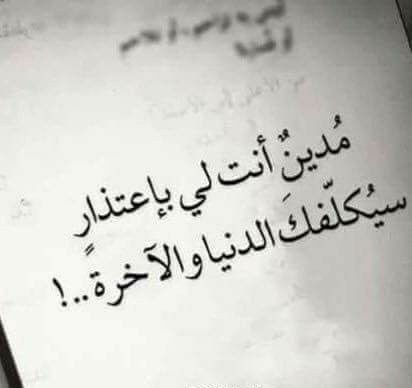 مُدينٌ أنت لي بإعتذارٍ
سيُكلّفكَ الدنيا والآخرة..!